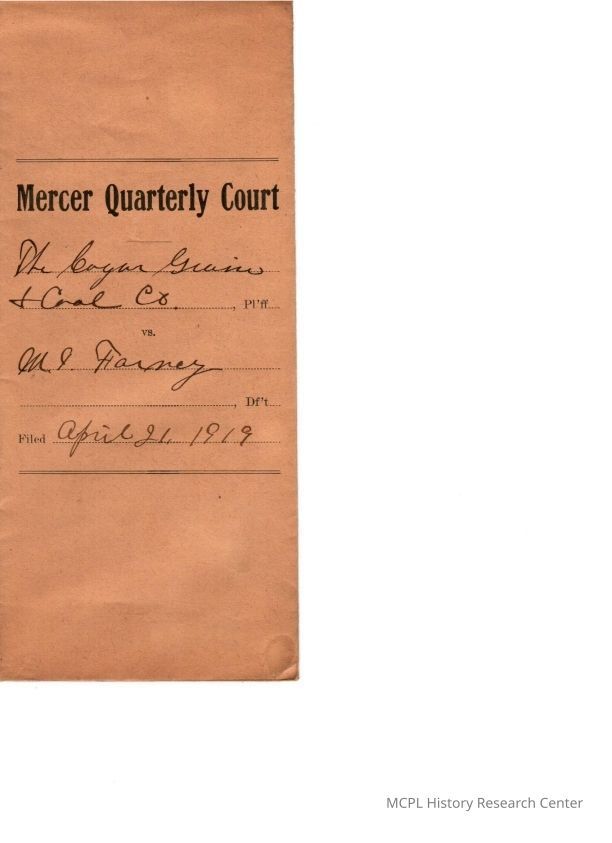 Mercer Quarterly Court
The Cogar Grain
& Coal Co. , Pl'ff
vs.
M. I. Farney
, Df't
Filed April 21, 1919
MCPL History Research Center